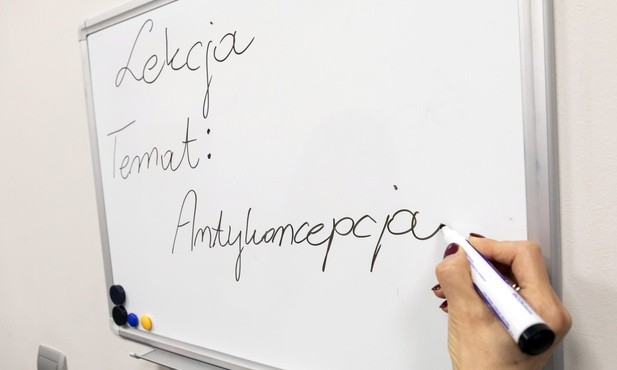 Lekcja
Temat:
Antykoncepcja